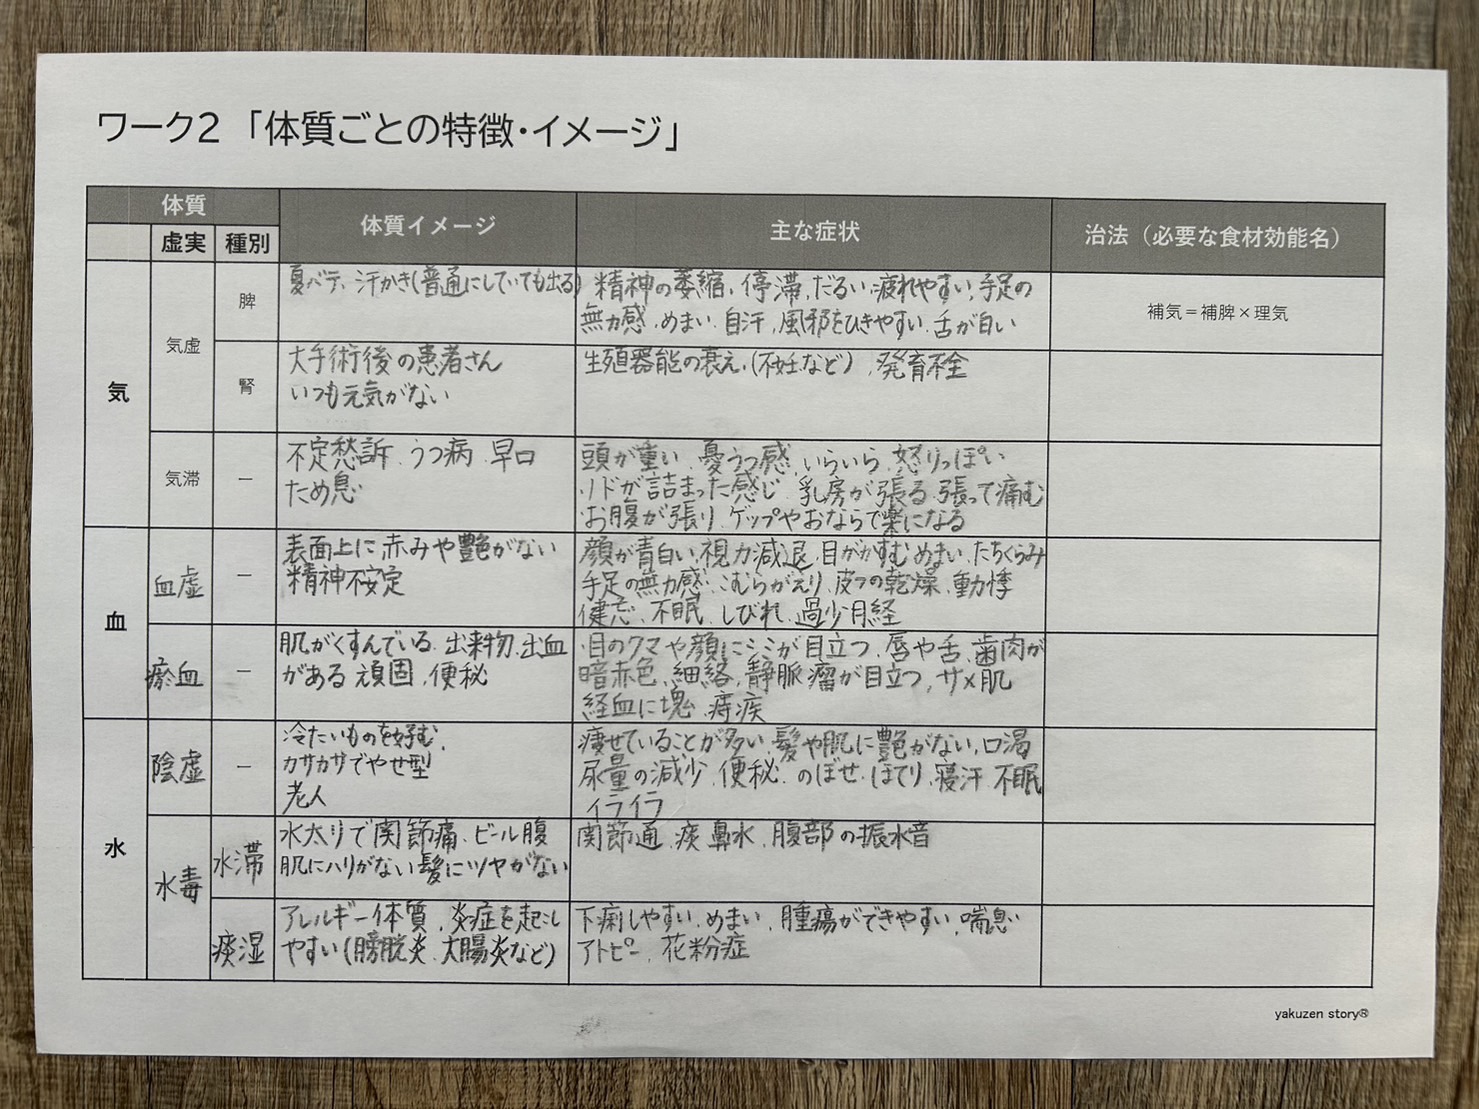 ワーク2 「体質ごとの特徴・イメージ」
体質
体質イメージ
主な症状
治法（必要な食材効能名）
虚実
種別
気
気虚
脾
夏バテ、汗かき(普通にしていても出る)
精神の萎縮、停滞、だるい、疲れやすい、手足の
無力感、めまい、自汗、風邪をひきやすい、舌が白い
補気＝補脾×理気
腎
大手術後の患者さん
いつも元気がない
生殖器能の衰え、(不妊など)、発育不全
気滞
ー
不定愁訴、うつ病、早口
ため息
頭が重い、憂うつ感、いらいら、怒りっぽい
ノドが詰まった感じ、乳房が張る、張って痛む
お腹が張り、ゲップやおならで楽になる
血
血虚
ー
表面上に赤みや艶がない
精神不安定
顔が青白い、視力減退、目がかすむ、めまい、たちくらみ
手足の無力感、こむらがえり、皮フの乾燥、動悸
健忘、不眠、しびれ、過少月経
瘀血
ー
肌がくすんでいる、出来物、出血
がある、頑固、便秘
目のクマや顔にシミが目立つ、唇や舌、歯肉が
暗赤色、細絡、静脈瘤が目立つ、サメ肌
経血に塊、痔疾
水
陰虚
ー
冷たいものを好む、
カサカサでやせ型
老人
痩せていることが多い、髪や肌に艶がない、口渇
尿量の減少、便秘、のぼせ、ほてり、寝汗、不眠
イライラ
水毒
水滞
水太りで関節痛、ビール腹
肌にハリがない髪にツヤがない
関節通、痰、鼻水、腹部の振水音
痰湿
アレルギー体質、炎症を起こし
やすい(膀胱炎、大腸炎など)
下痢しやすい、めまい、腫瘍ができやすい、喘息
アトピー、花粉症
yakuzen story®